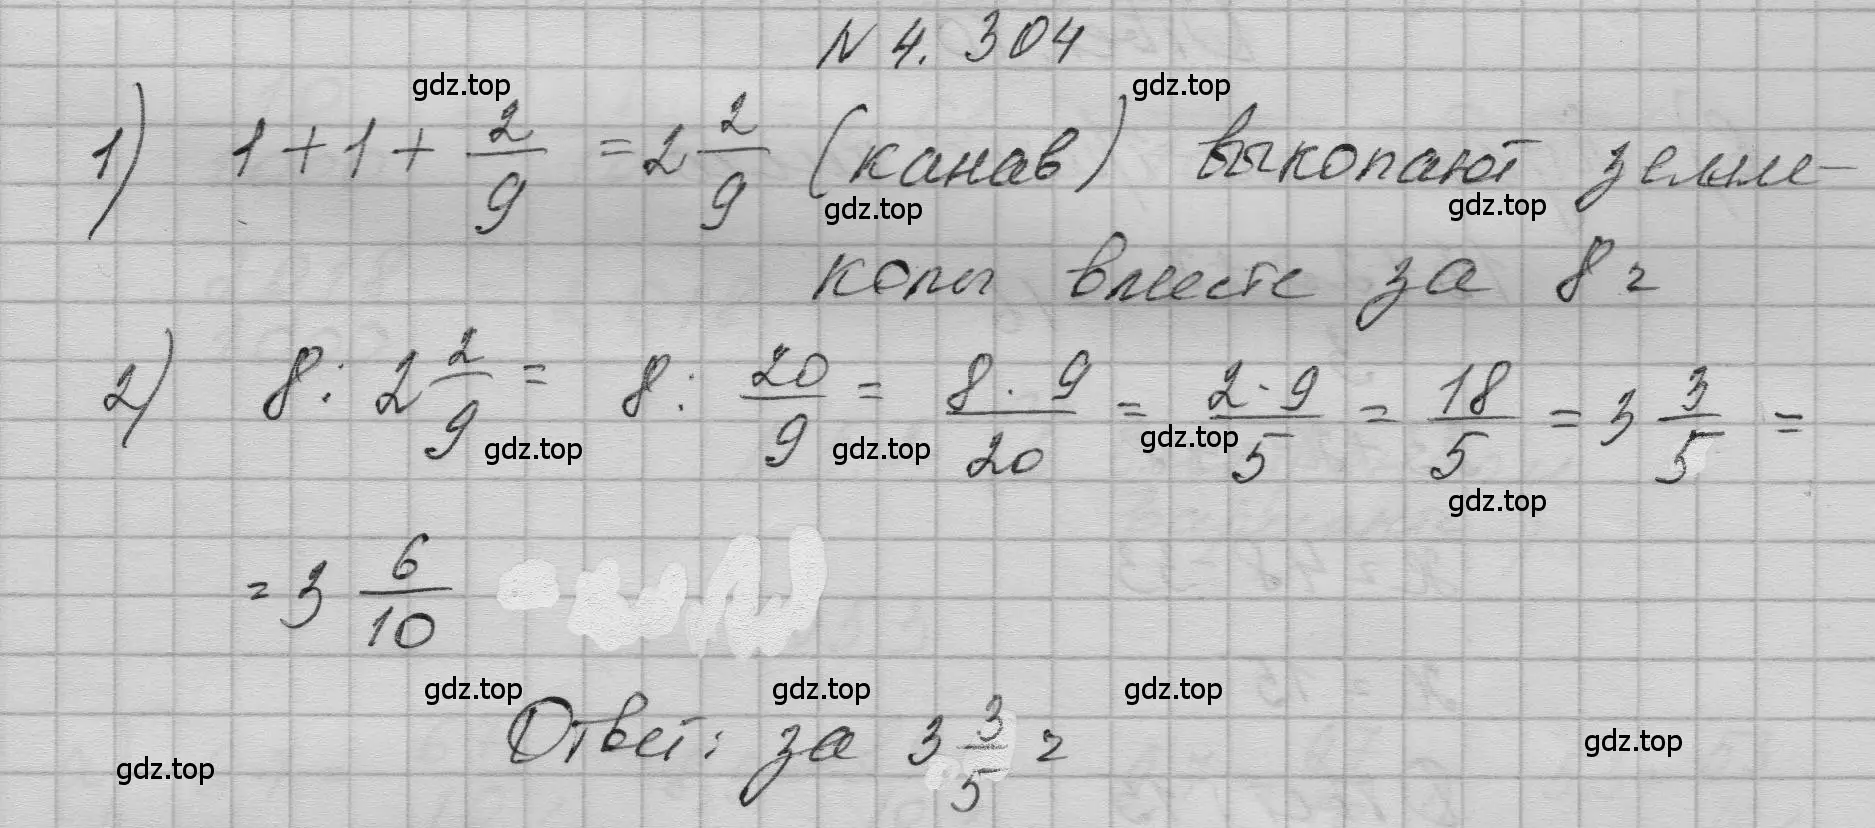 N 4.304
1) 1 + 1 + 2/9 = 2 2/9 (канав) выкопают земле-
копы вместе за 8 ч
2) 8 : 2 2/9 = 8 : 20/9 = 8 · 9/20 = 2 · 9/5 = 18/5 = 3 3/5 =
= 3 6/10
Ответ: за 3 3/5 ч
gdz.top
gdz.top
gdz.top
gdz.top
gdz.top
gdz.top
gdz.top
gdz.top
gdz.top
gdz.top
gdz.top
gdz.top
gdz.top